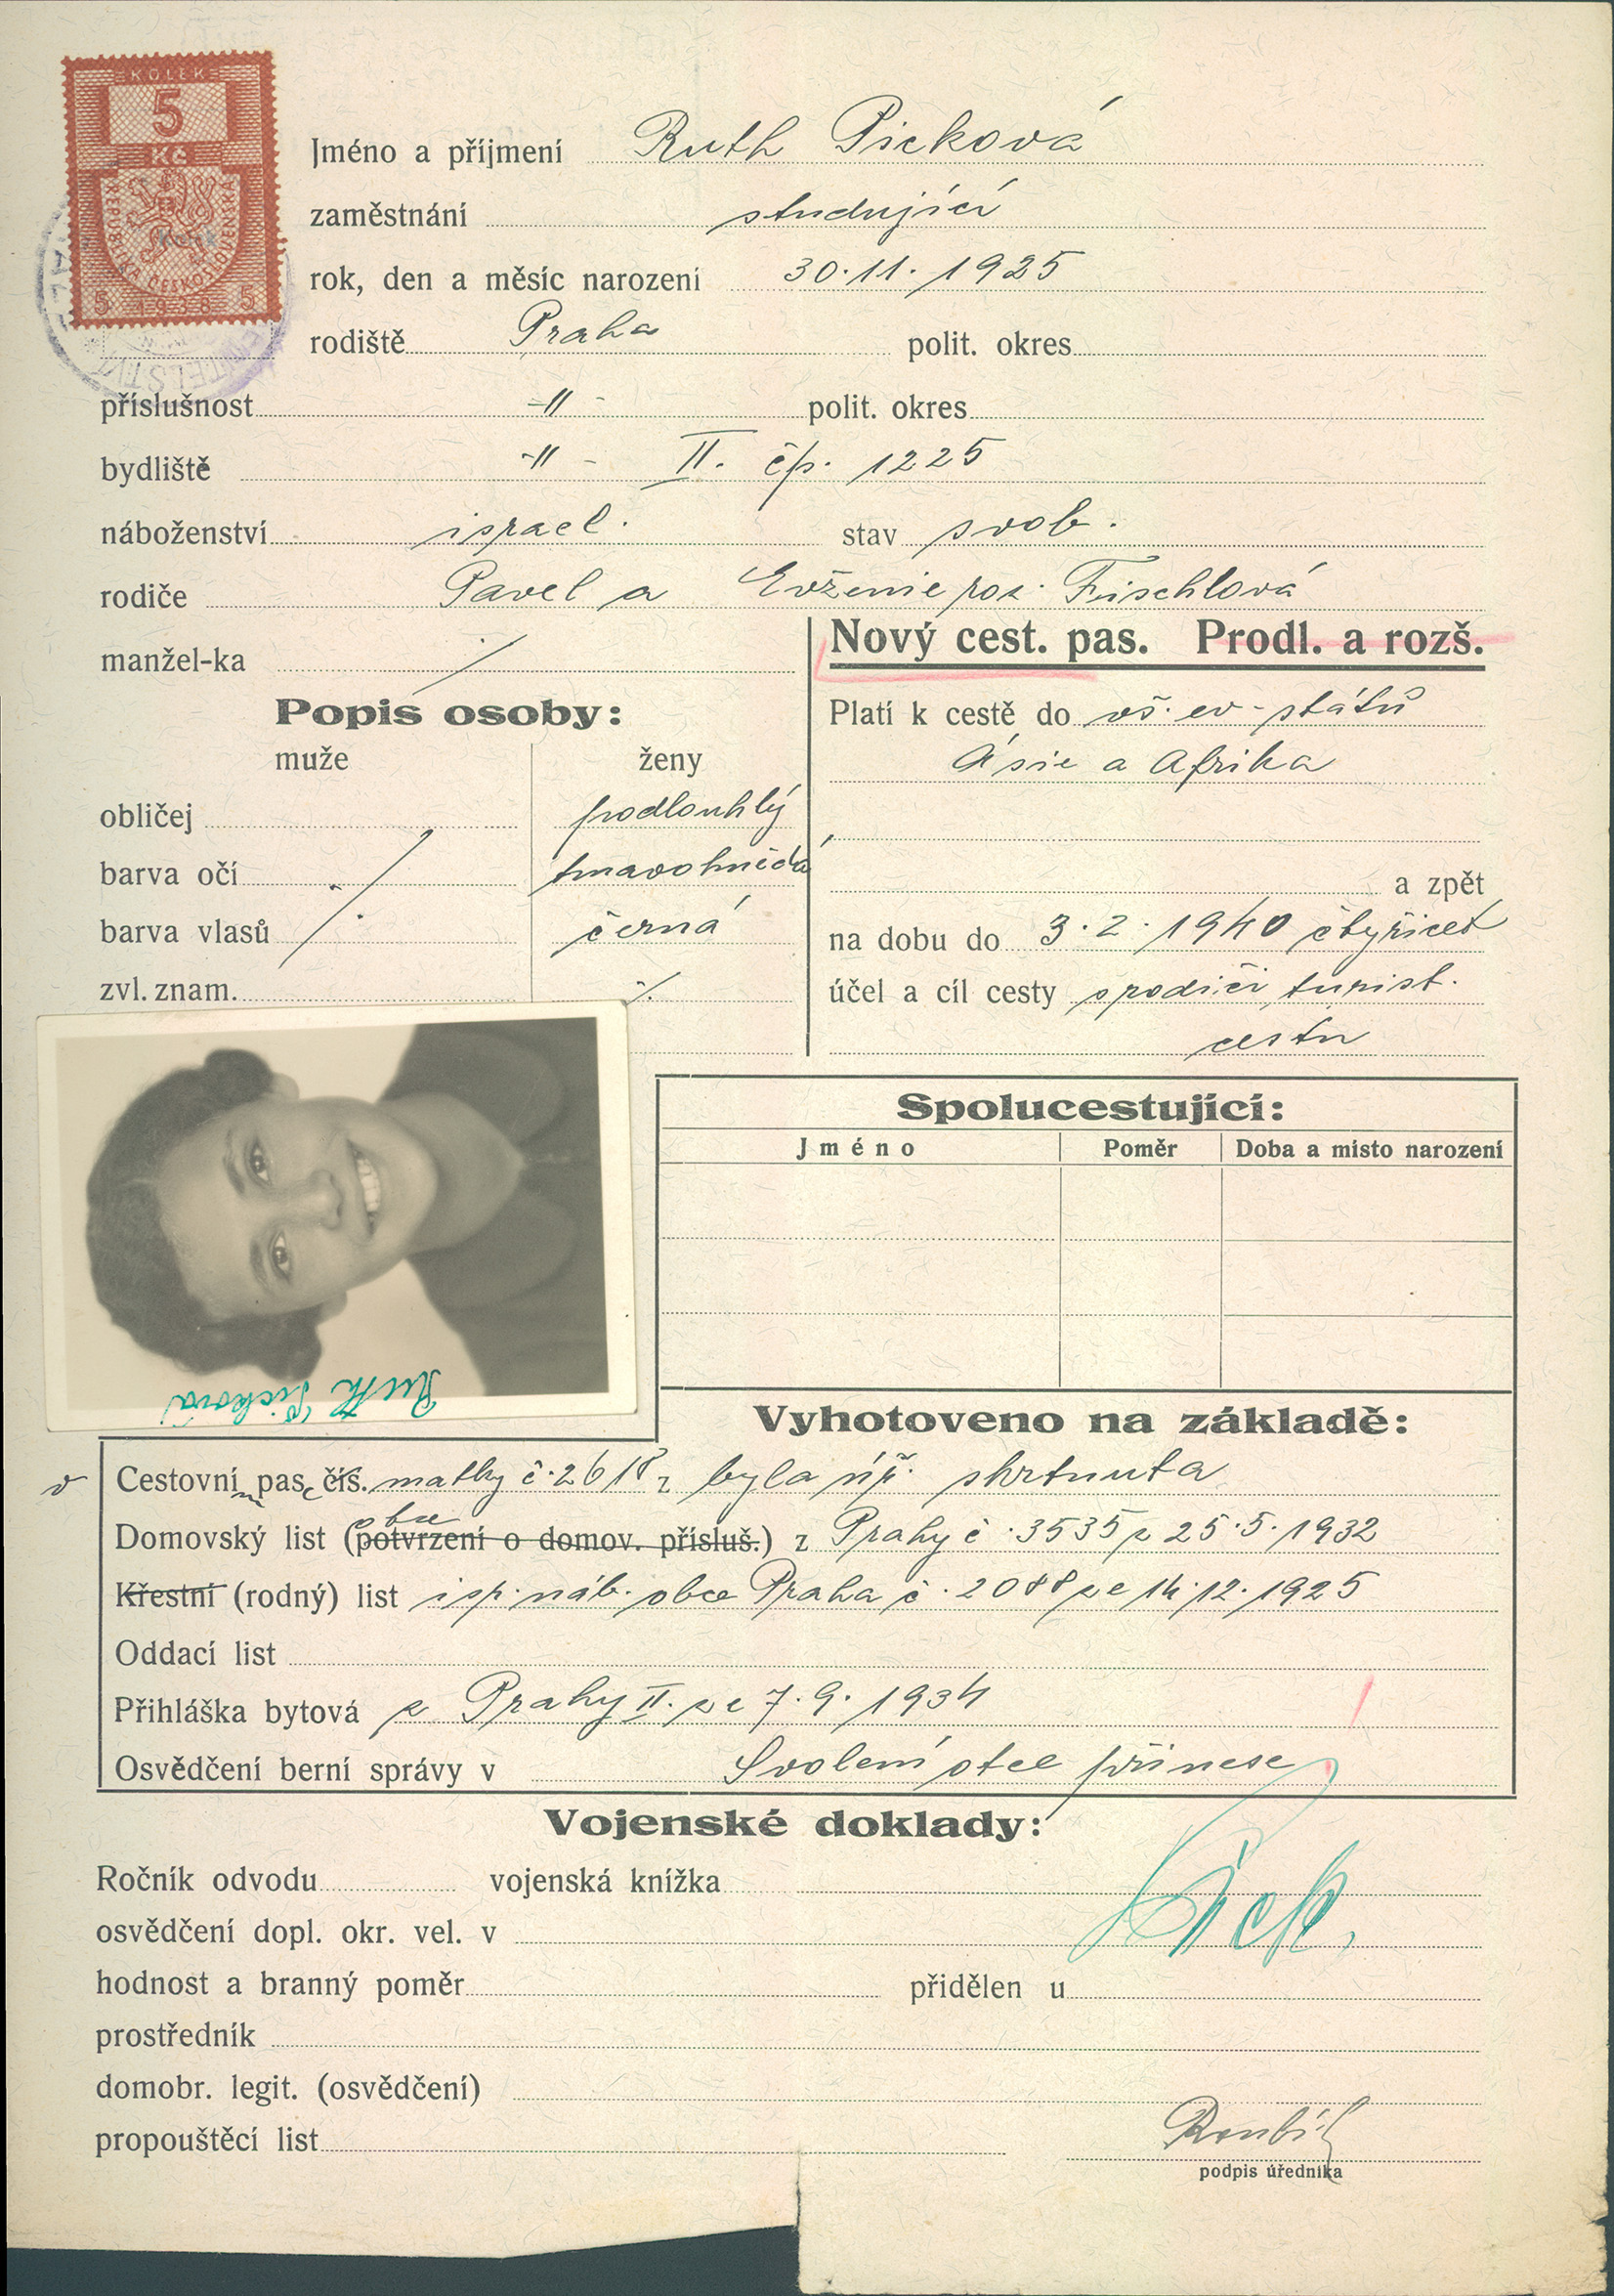 KOLEK
5
Kč
REPUBLIKA ČESKOSLOVENSKÁ
5 1938 5
Jméno a příjmení Ruth Picková
zaměstnání studující
rok, den a měsíc narození 30.11.1925
rodiště Praha polit. okres
příslušnost -"- polit. okres
bydliště -"- II. čp. 1225
náboženství israel. stav svob.
rodiče Pavel a Evženie roz. Fischlová
manžel-ka /
Nový cest. pas. Prodl. a rozš.
Popis osoby:
muže ženy
obličej podlouhlý
barva očí tmavohnědá
barva vlasů černá
zvl. znam. ./.
Platí k cestě do vš. ev. států
Asie a Afrika
a zpět
na dobu do 3.2.1940 čtyřicet
účel a cíl cesty s rodiči, turist.
cestu
Spolucestující:
Jméno Poměr Doba a misto narození
Ruth Picková
Vyhotoveno na základě:
Cestovní pas čís. matky č. 2618, byla škrtnuta
Domovský list (potvrzení o domov. přísluš.) obce z Prahy č. 3535 z 25.5.1932
Křestní (rodný) list isr. náb. obce Praha č. 2088 ze 14.12.1925
Oddací list
Přihláška bytová z Prahy II. ze 7.9.1934
Osvědčení berní správy v Svolení otce přinese
Vojenské doklady:
Ročník odvodu vojenská knížka
Pick.
osvědčení dopl. okr. vel. v
hodnost a branný poměr přidělen u
prostředník
domobr. legit. (osvědčení)
propouštěcí list
podpis úředníka